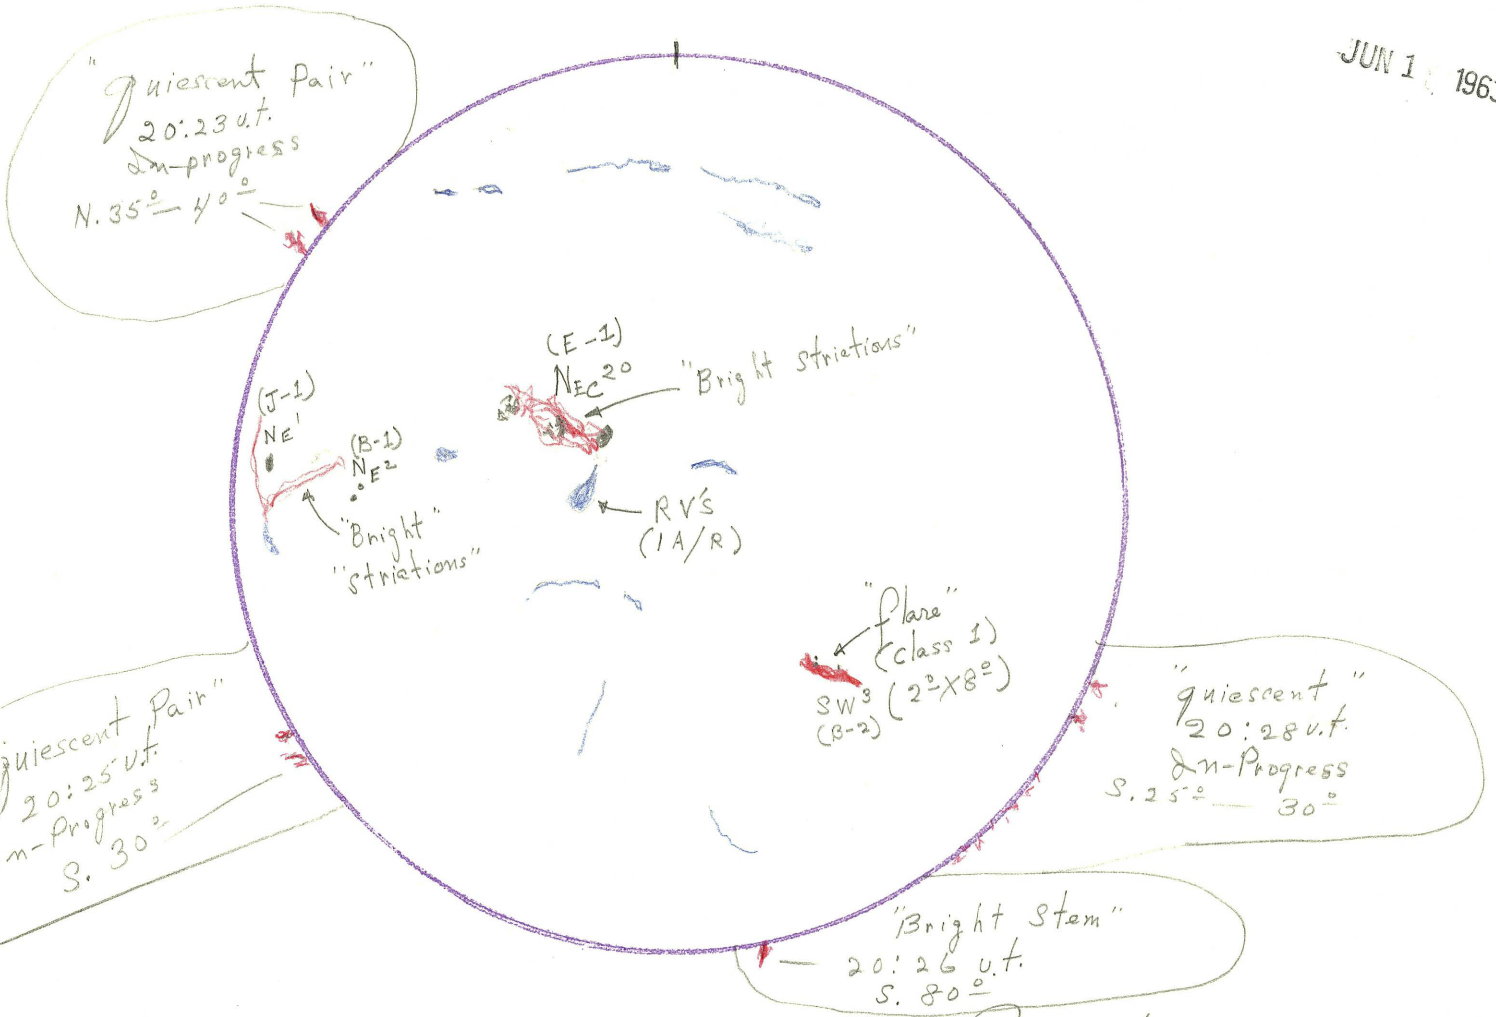 JUN 1 196
"quiescent Pair"
20:23 u.t.
In-progress
N. 35° — 40°
(E-1)
NEC 20
"Bright Striations"
(J-1)
NE 1
(B-1)
NE 2
"Bright"
"Striations"
RV's
(1A/R)
"flare"
(class 1)
(2° X 8°)
SW 3
(B-2)
quiescent Pair"
20:25 u.t.
n-Progress
S. 30°
"quiescent"
20:28 u.t.
In-Progress
S. 25° — 30°
"Bright Stem"
20:26 u.t.
S. 80°